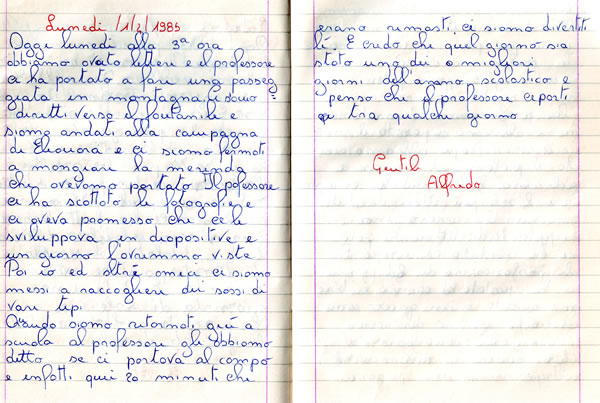 Lunedì /1/2/1985
Oggi lunedì alla 3ª ora
abbiamo avuto lettere e il professore
ci ha portato a fare una passeg
giata in montagna, ci siamo
diretti verso il fontanile e
siamo andati alla campagna
di Eleonora e ci siamo fermati
a mangiare la merenda
che avevamo portato Il professore
ci ha scattato le fotografie e
ci aveva promesso che ce le
sviluppava in diapositive e
un giorno l'avremmo viste
Poi io ed altri amici ci siamo
messi a raccogliere dei sassi di
vare tipi.
Quando siamo ritornati giù a
scuola al professore gli abbiamo
detto se ci portava al campo
e infatti quei 20 minuti che
erano rimasti, ci siamo divertiti
lì. E credo che quel giorno sia
stato uno dei migliori
giorni dell'anno scolastico e
penso che il professore ci porti
qui tra qualche giorno
Gentili
Alfredo